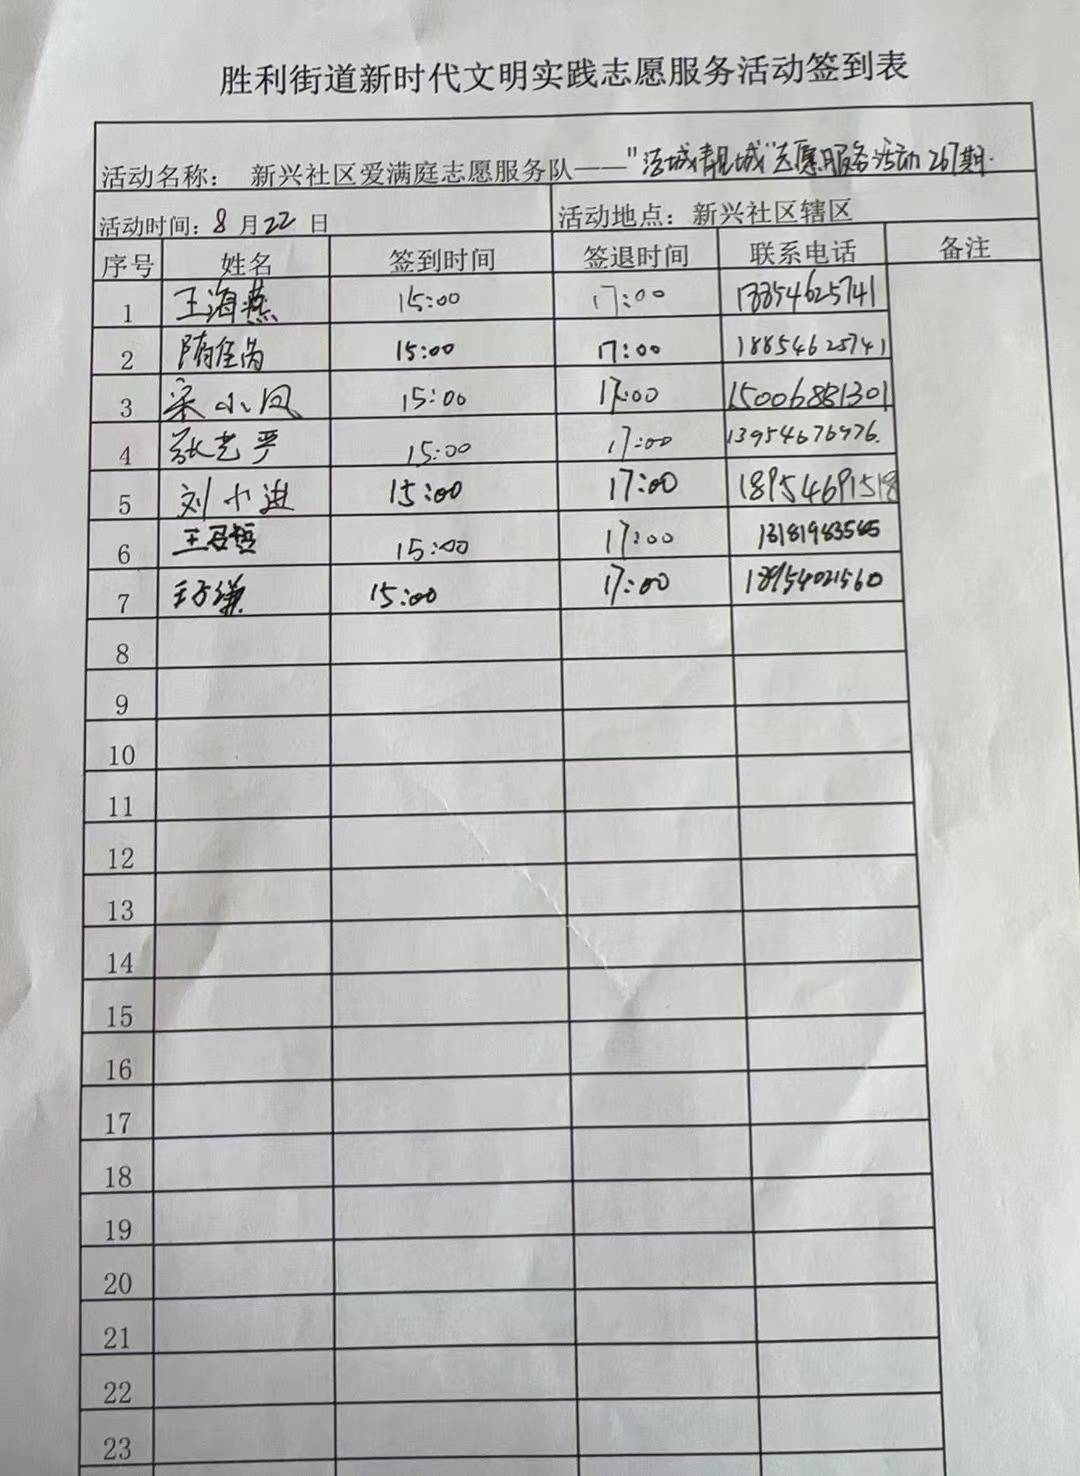 胜利街道新时代文明实践志愿服务活动签到表
活动名称： 新兴社区爱满庭志愿服务队——"洁城靓城"志愿服务活动267期.
活动时间：8月22日 活动地点：新兴社区辖区
序号 姓名 签到时间 签退时间 联系电话 备注
1 王海燕 15:00 17:00
2 15:00 17:00 18854625741
3 宋小凤 15:00 17:00 15006881301
4 张艺严 15:00 17:00 13954676976.
5 刘小进 15:00 17:00 18954691518
6 15:00 17:00 13181983585
7 15:00 17:00 18954021560
8
9
10
11
12
13
14
15
16
17
18
19
20
21
22
23